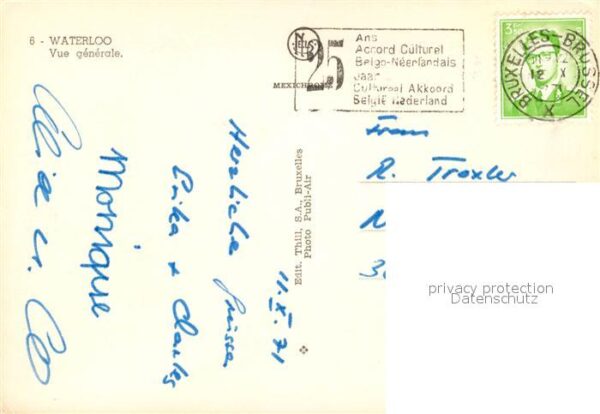 6 - WATERLOO
Vue générale.
25
Ans
Accord Culturel
Belgo-Néerlandais
Jaar
Cultureel Akkoord
België Nederland
BRUXELLES-BRUSSEL
12 X
X
3F
MEXICHROME
Edit. Thill, S.A., Bruxelles
Photo Publi-Air
11.X.71
Herzliche Grüsse
Erika + Charles
Monique
Frau
R. Troxler
privacy protection
Datenschutz